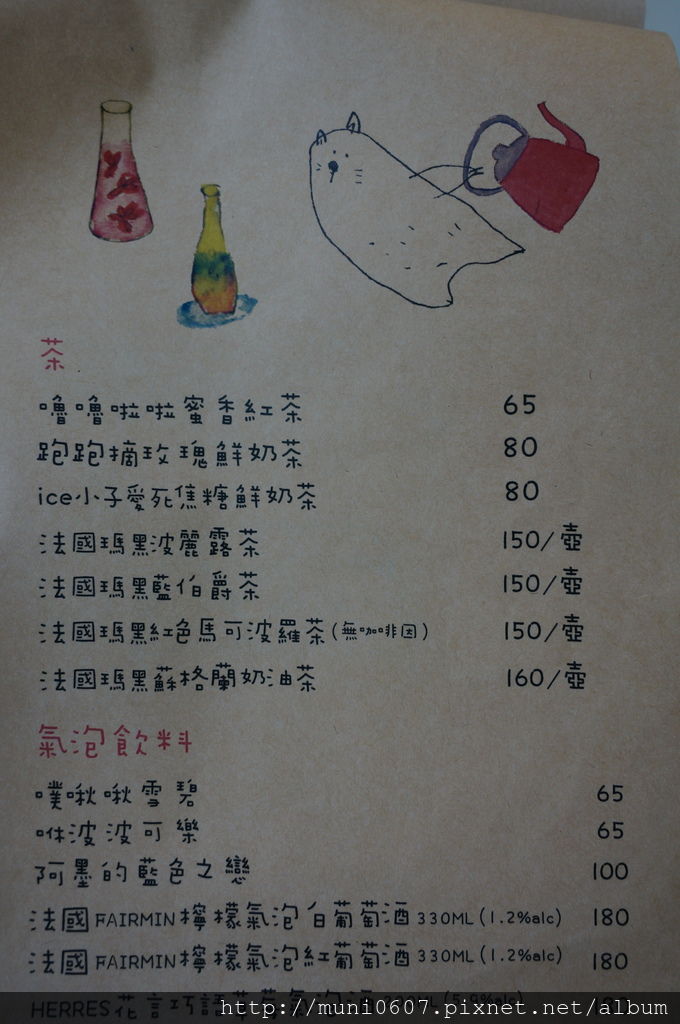 茶
嚕嚕啦啦蜜香紅茶 65
跑跑摘玫瑰鮮奶茶 80
ice小子愛死焦糖鮮奶茶 80
法國瑪黑波麗露茶 150/壺
法國瑪黑藍伯爵茶 150/壺
法國瑪黑紅色馬可波羅茶(無咖啡因) 150/壺
法國瑪黑蘇格蘭奶油茶 160/壺
氣泡飲料
噗啾啾雪碧 65
咻波波可樂 65
阿墨的藍色之戀 100
法國FAIRMIN檸檬氣泡白葡萄酒 330ML(1.2%alc) 180
法國FAIRMIN檸檬氣泡紅葡萄酒 330ML(1.2%alc) 180
HERRES花言巧語草莓氣泡酒 180
http://muni0607.pixnet.net/album